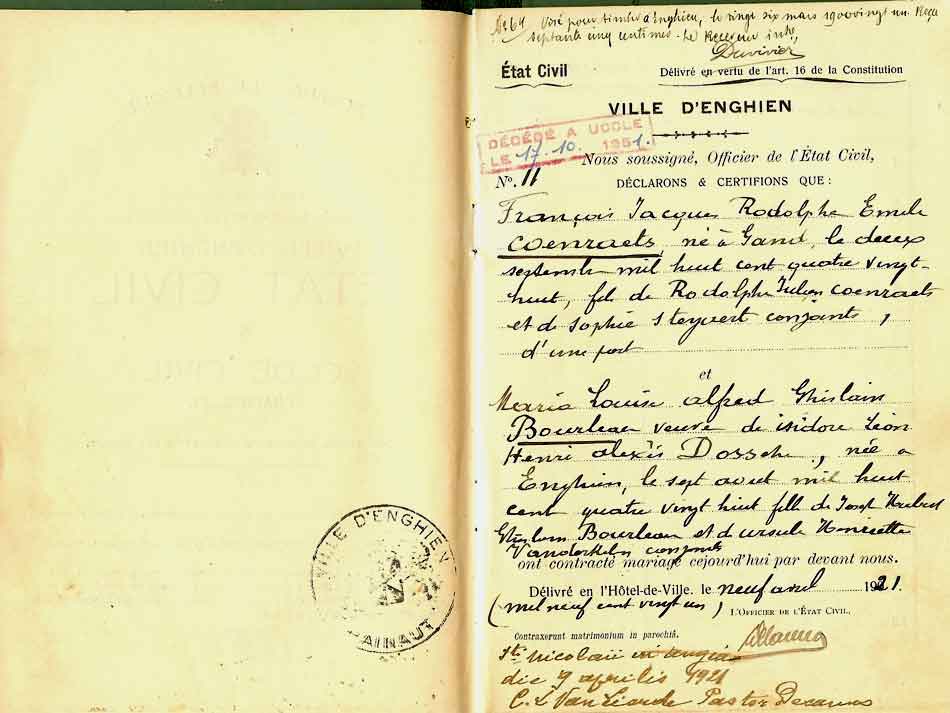 No 64 Visé pour timbre à Enghien, le vingt six mars 1900 vingt un. Reçu
septante cinq centimes. Le Receveur inté
Duvivier
État Civil
Délivré en vertu de l'art. 16 de la Constitution
VILLE D'ENGHIEN
DÉCÉDÉ A UCCLE
LE 17. 10. 1951.
Nous soussigné, Officier de l'État Civil,
No. 11
DÉCLARONS & CERTIFIONS QUE :
François Jacques Rodolphe Emile
Coenraets, né à Gand, le deux
septembre mil huit cent quatre vingt-
huit, fils de Rodolphe Julien Coenraets
et de Sophie Steyvert conjoints,
d'une part
et
Maria Louise Alfred Ghislain
Bourleau veuve de isidore Léon
Henri Alexis Dossche, née à
Enghien, le sept aout mil huit
cent quatre vingt huit fille de Joseph Hubert
Ghislain Bourleau et d'ursule Henriette
Vanderkelen conjoints
ont contracté mariage cejourd'hui par devant nous.
Délivré en l'Hôtel-de-Ville, le neuf avril 1921.
(mil neuf cent vingt un)
L'OFFICIER DE L'ÉTAT CIVIL,
Contraxerunt matrimonium in parochiâ.
Sti Nicolaii in Enghien
die 9 aprilis 1921
C. L Van Lierde Pastor Decanus
VILLE D'ENGHIEN
HAINAUT